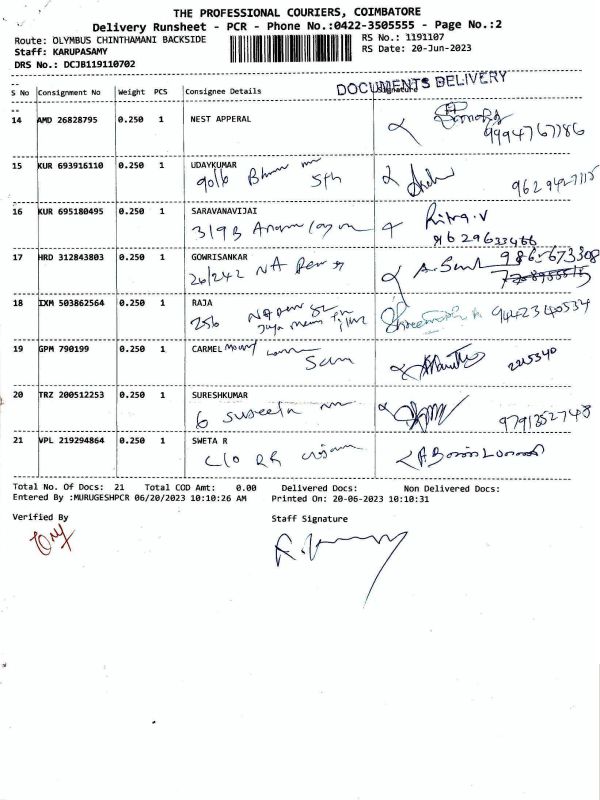 THE PROFESSIONAL COURIERS, COIMBATORE
Delivery Runsheet - PCR - Phone No.:0422-3505555 - Page No.:2
Route: OLYMBUS CHINTHAMANI BACKSIDE
RS No.: 1191107
Staff: KARUPASAMY
RS Date: 20-Jun-2023
DRS No.: DCJB119110702
DOCUMENTS DELIVERY
S No Consignment No Weight PCS Consignee Details Signature
14 AMD 26828795 0.250 1 NEST APPERAL
9994767186
15 KUR 693916110 0.250 1 UDAYKUMAR
90/6 5th
9629427115
16 KUR 695180495 0.250 1 SARAVANAVIJAI
319B
9629633466
17 HRD 312843803 0.250 1 GOWRISANKAR
26/242 NA
18 IXM 503862564 0.250 1 RAJA
256
9442340534
19 GPM 790199 0.250 1 CARMEL Mount
2215340
20 TRZ 200512253 0.250 1 SURESHKUMAR
6
9791352748
21 VPL 219294864 0.250 1 SWETA R
C/O RR
Total No. Of Docs: 21 Total COD Amt: 0.00 Delivered Docs: Non Delivered Docs:
Entered By :MURUGESHPCR 06/20/2023 10:10:26 AM Printed On: 20-06-2023 10:10:31
Verified By Staff Signature